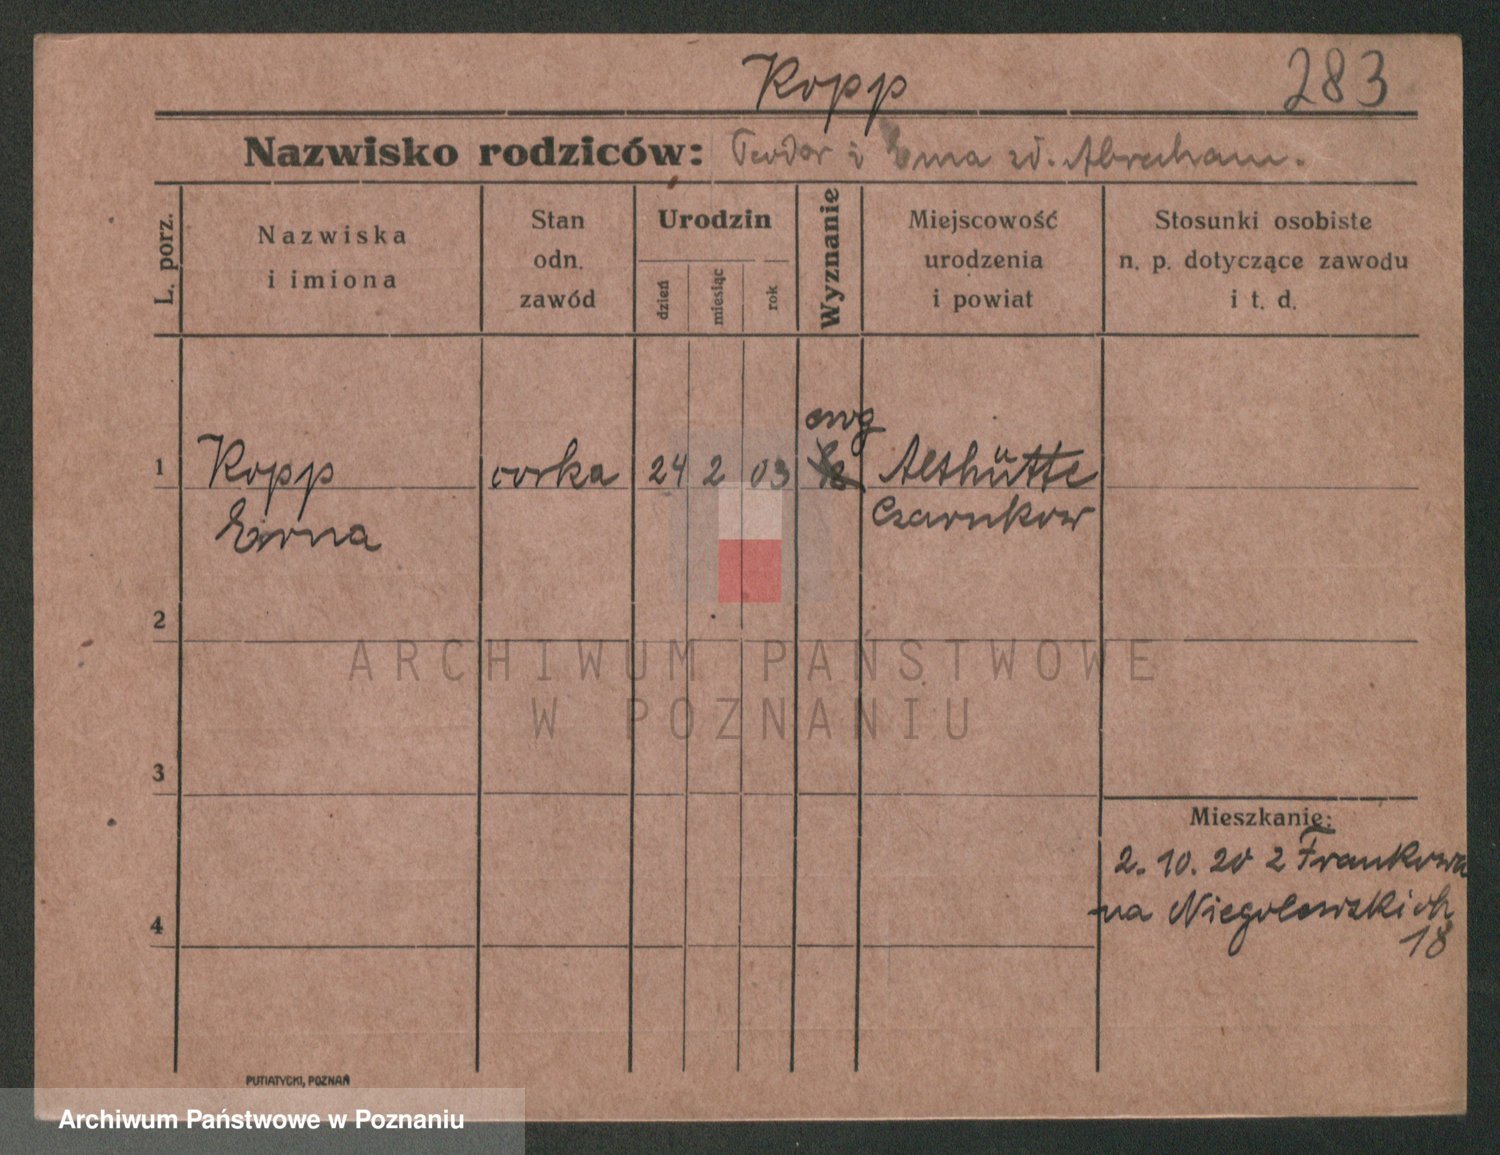 Kopp
283
Nazwisko rodziców: Teodor i Ema zd. Abraham.
L. porz.
Nazwiska
i imiona
Stan
odn.
zawód
Urodzin
dzień
miesiąc
rok
Wyznanie
Miejscowość
urodzenia
i powiat
Stosunki osobiste
n. p. dotyczące zawodu
i t. d.
ewg
1 Kopp corka 24 2 03 Althütte
Erna Czarnkow
2
ARCHIWUM PAŃSTWOWE
W POZNANIU
3
Mieszkanie:
2. 10. 20 z Frankowa
na Niegolewskich
18
4
PUTIATYCKI, POZNAŃ
Archiwum Państwowe w Poznaniu